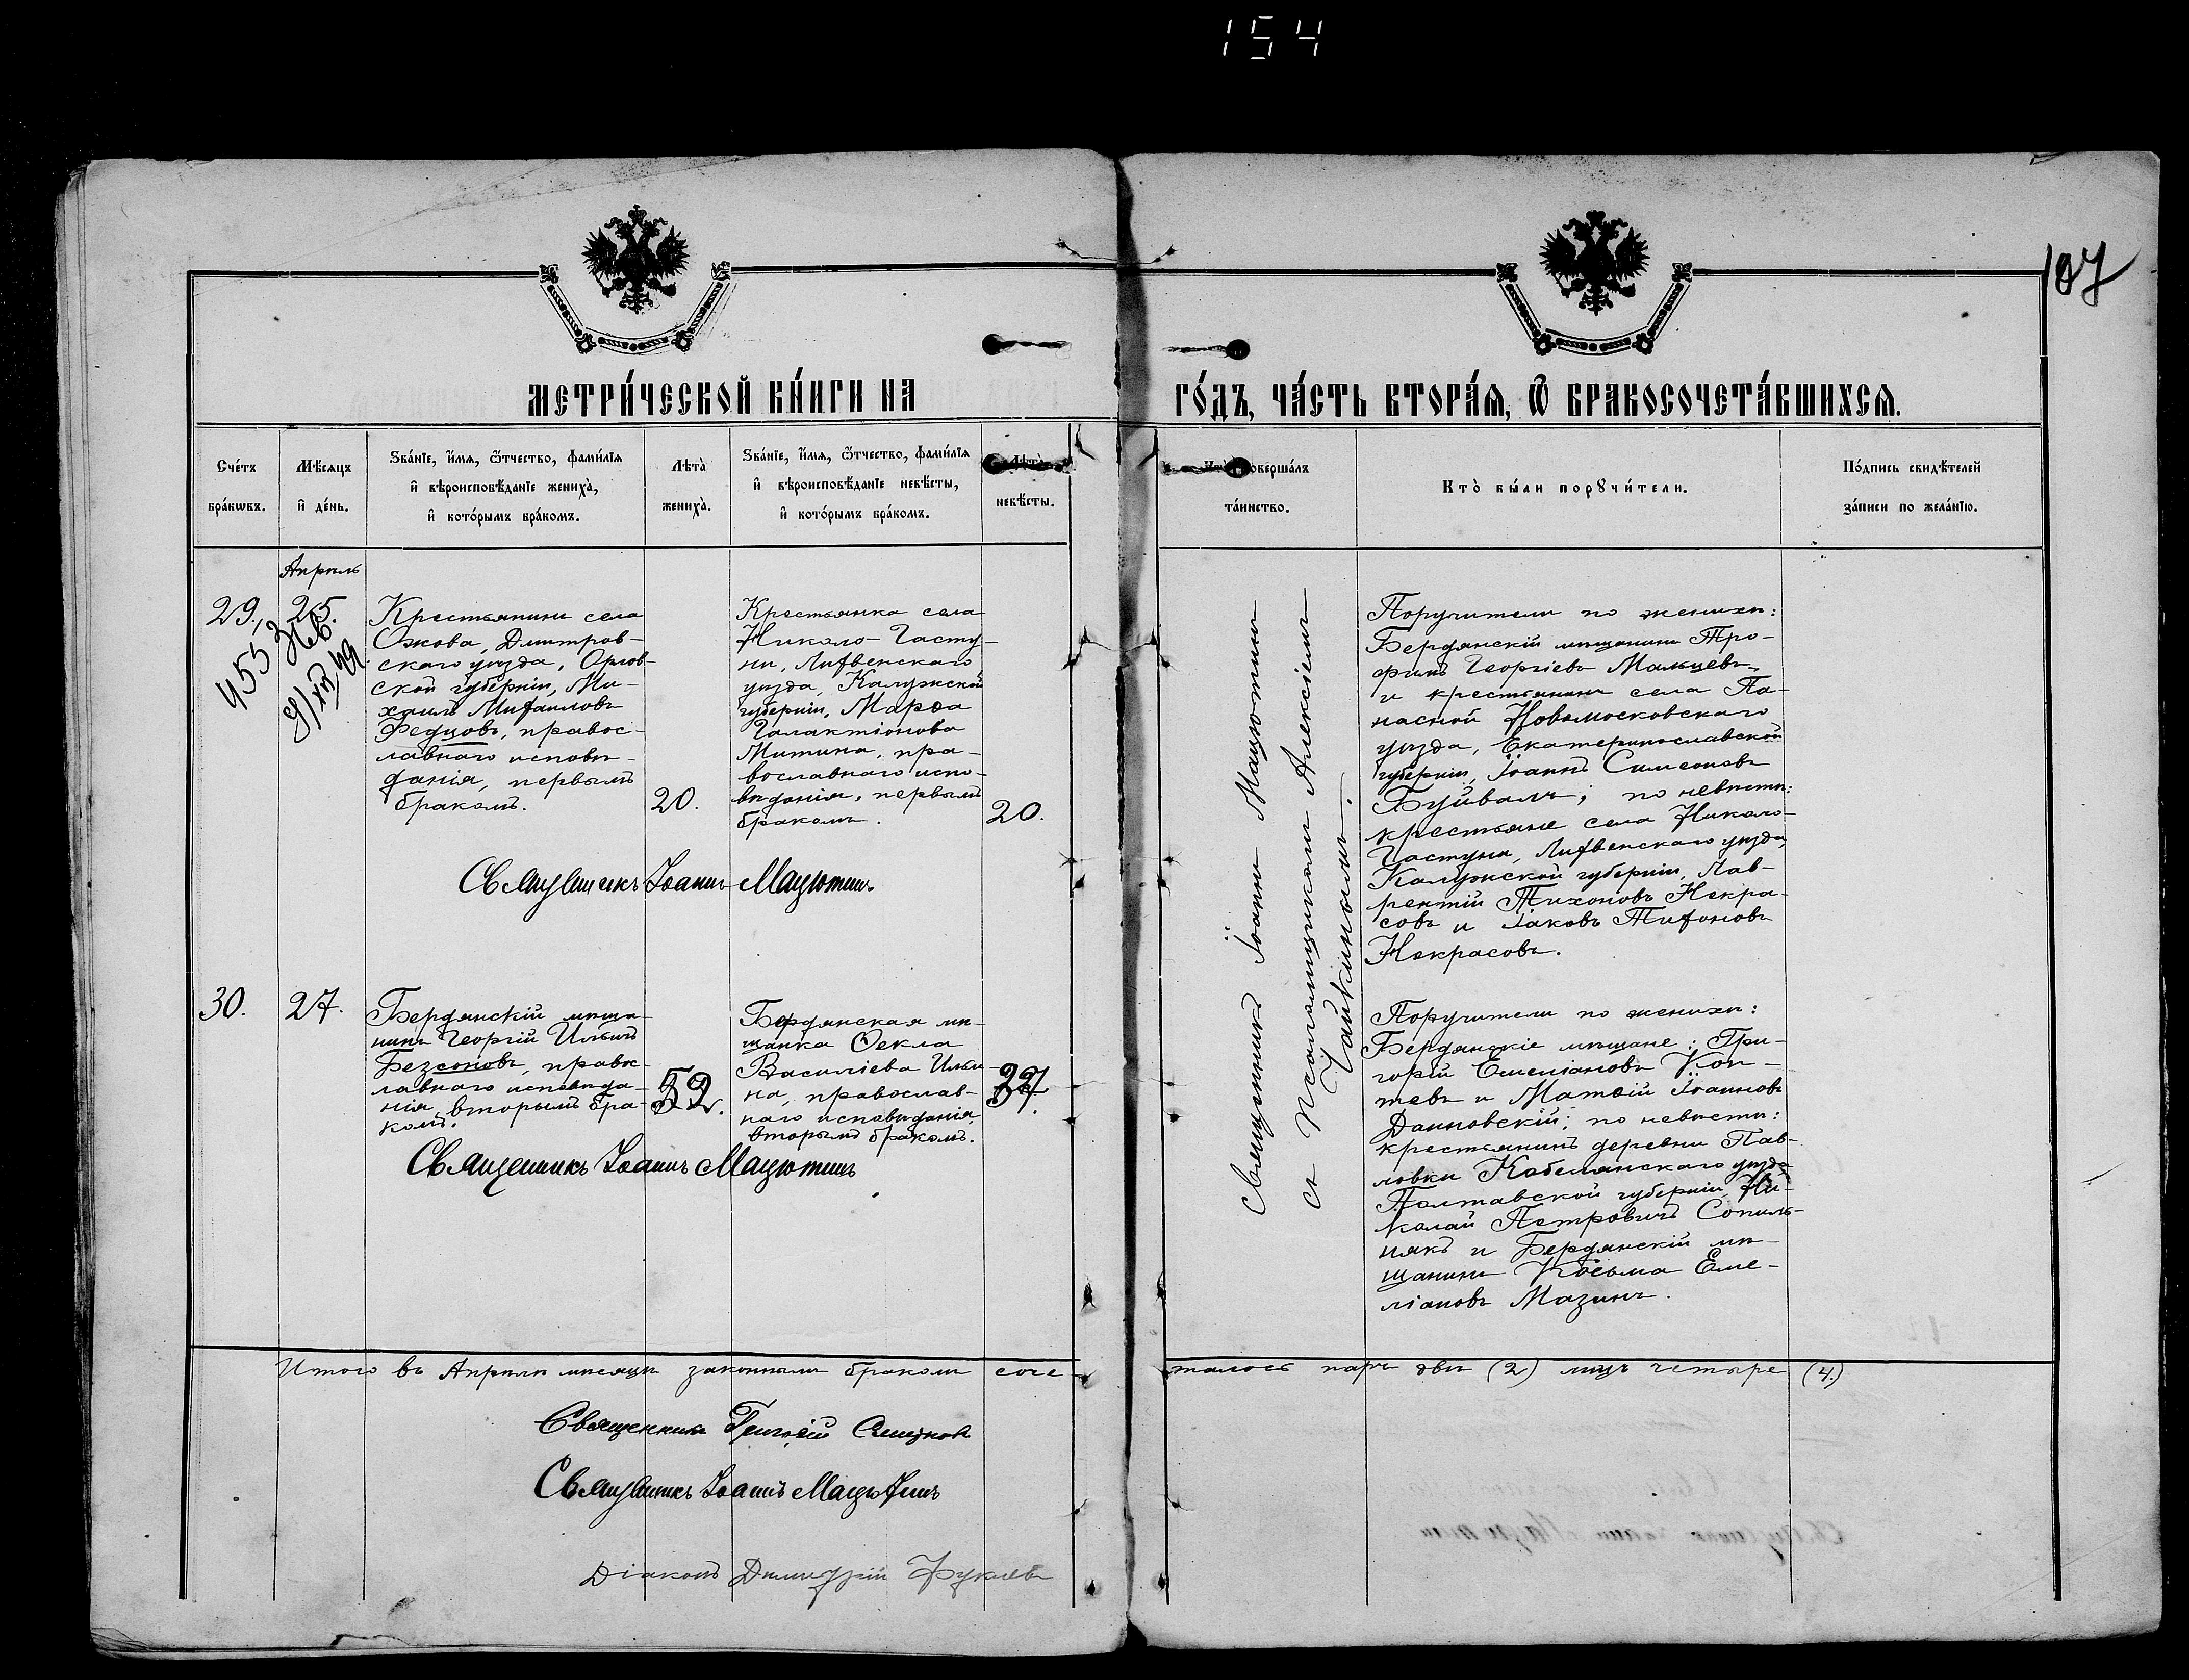 154
107
МЕТРИ́ЧЕСКОЙ КНИ́ГИ НА
ГО́ДЪ, ЧА́СТЬ ВТОРА́Я, Ѿ БРАКОСОЧЕТА́ВШИХСЯ.
Сче́тъ бра́кωвъ.
Мѣ́сяцъ и҆ де́нь.
Ѕва́нїе, и҆́мя, ѻ҆́тчество, фами́лїя
и҆ вѣроисповѣ́данїе жениха̀,
и҆ кото́рымъ бра́комъ.
Лѣта̀ жениха̀.
Ѕва́нїе, и҆́мя, ѻ҆́тчество, фами́лїя
и҆ вѣроисповѣ́данїе невѣ́сты,
и҆ кото́рымъ бра́комъ.
Лѣта̀ невѣ́сты.
Кто̀ соверша́лъ
та́инство.
Кто̀ бы́ли порꙋчи́тели.
По́дпись свидѣ́телей
за́писи по жела́нїю.
Апрѣль
29.
25.
Крестьянинъ села
Ожова, Дмитров-
скаго уѣзда, Орлов-
ской губерніи, Ми-
хаилъ Михаиловъ
Федцовъ, правос-
лавнаго исповѣ-
данія, первымъ
бракомъ.
20.
Крестьянка села
Николо-Гасту-
ни, Лихвенскаго
уѣзда, Калужской
губерніи, Марѳа
Галактіонова
Митина, пра-
вославнаго испо-
вѣданія, первымъ
бракомъ.
20.
Священникъ Іоаннъ Мацютинъ
Священникъ Іоаннъ Мацютинъ
съ Псаломщикомъ Алексіемъ
Чайкинымъ.
Поручители по женихѣ:
Бердянскій мѣщанинъ Тро-
фимъ Георгіевъ Мальцевъ,
и крестьянинъ села По-
насной Новомосковскаго
уѣзда, Екатеринославской
губерніи, Іоаннъ Симеоновъ
Буйвалъ; по невѣстѣ:
крестьяне села Николо-
Гастуни, Лихвенскаго уѣзда,
Калужской губерніи, Лав-
рентій Тихоновъ Некра-
совъ и Іаковъ Тихоновъ
Некрасовъ.
30.
27.
Бердянскій мѣща-
нинъ Георгій Ильинъ
Безсоновъ, правос-
лавнаго исповѣда-
нія, вторымъ бра-
комъ.
52.
Бердянская мѣ-
щанка Ѳекла
Василіева Ильи-
на, православ-
наго исповѣданія,
вторымъ бракомъ.
37.
Священникъ Іоаннъ Мацютинъ
Поручители по женихѣ:
Бердянскіе мѣщане: Гри-
горій Емеліановъ Коп-
тевъ и Матѳій Іоанновъ
Данновскій; по невѣстѣ:
крестьянинъ деревни Пав-
ловки Кобелянскаго уѣзда
Полтавской губерніи, Ни-
колай Петровичъ Сопиль-
някъ и Бердянскій мѣ-
щанинъ Косьма Еме-
ліановъ Мазинъ.
Итого въ Апрѣлѣ мѣсяцѣ законнымъ бракомъ соче-
талось паръ двѣ (2) лицъ четыре (4.)
Священникъ Григорій Смирновъ
Священникъ Іоаннъ Мацютинъ
Діаконъ Димитрій